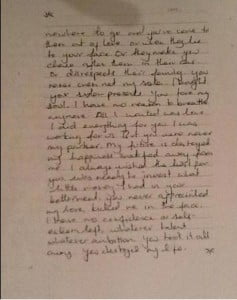 nowhere to go and you've come to
them out of love or when they lie
to your face or they make you
chase after them in then
or disrespect their family you
never even met my
your sister presents you tore my
soul. I have no reason to breathe
anymore. All I wanted was love
I did everything for you I was
working for us but you were never
my partner. My future is destroyed
my happiness snatched away from
me. I always wished the best for
you was ready to invest what
little money I had in your
betterment. you never appreciated
my love, kicked me in the face.
I have no confidence or self
esteem left, whatever talent
whatever ambition you took it all
away. You destroyed my life.